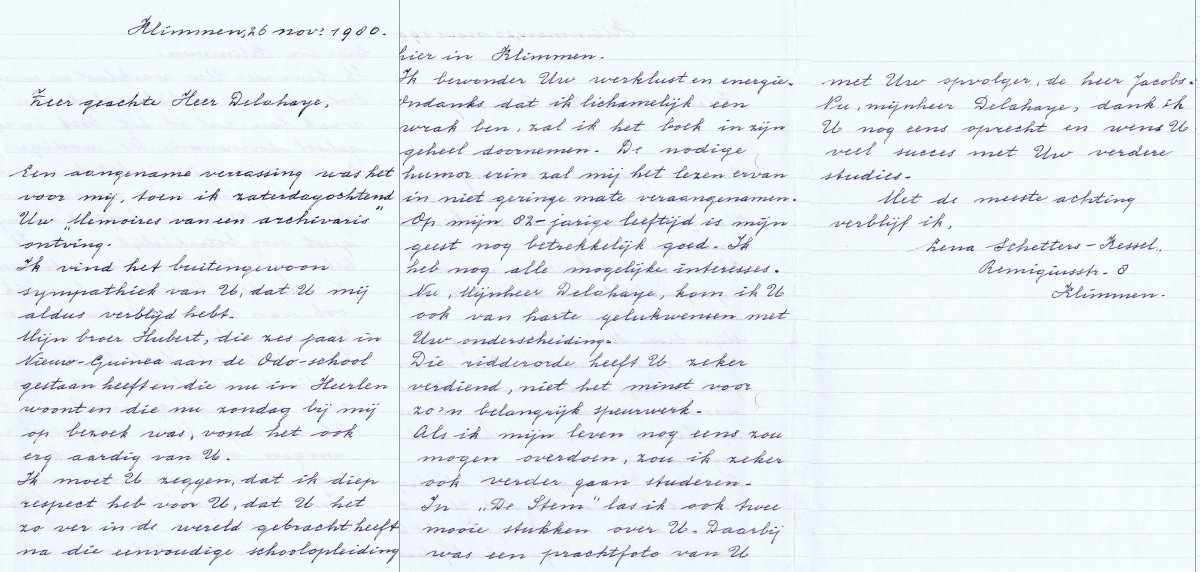 Klimmen, 26 nov: 1980.
Zeer geachte Heer Delahaye,
Een aangename verrassing was het
voor mij, toen ik zaterdagochtend
Uw „Memoires van een archivaris"
ontving.
Ik vind het buitengewoon
sympathiek van U, dat U mij
aldus verblijd hebt.
Mijn broer Hubert, die zes jaar in
Nieuw-Guinea aan de Odo-school
gestaan heeft en die nu in Heerlen
woont en die nu zondag bij mij
op bezoek was, vond het ook
erg aardig van U.
Ik moet U zeggen, dat ik diep
respect heb voor U, dat U het
zo ver in de wereld gebracht heeft
na die eenvoudige schoolopleiding
hier in Klimmen.
Ik bewonder Uw werklust en energie.
Ondanks dat ik lichamelijk een
wrak ben, zal ik het boek in zijn
geheel doornemen. De nodige
humor erin zal mij het lezen ervan
in niet geringe mate veraangenamen.
Op mijn 82-jarige leeftijd is mijn
geest nog betrekkelijk goed. Ik
heb nog alle mogelijke interesses.
Nu, Mijnheer Delahaye, kom ik U
ook van harte gelukwensen met
Uw onderscheiding.
Die ridderorde heeft U zeker
verdiend, niet het minst voor
zo'n belangrijk speurwerk.
Als ik mijn leven nog eens zou
mogen overdoen, zou ik zeker
ook verder gaan studeren.
In „De Stem" las ik ook twee
mooie stukken over U. Daarbij
was een prachtfoto van U
met Uw opvolger, de heer Jacobs.
Nu, mijnheer Delahaye, dank ik
U nog eens oprecht en wens U
veel succes met Uw verdere
studies.
Met de meeste achting
verblijf ik,
Lena Schetters-Kessel,,
Remigiusstr. 8
Klimmen.